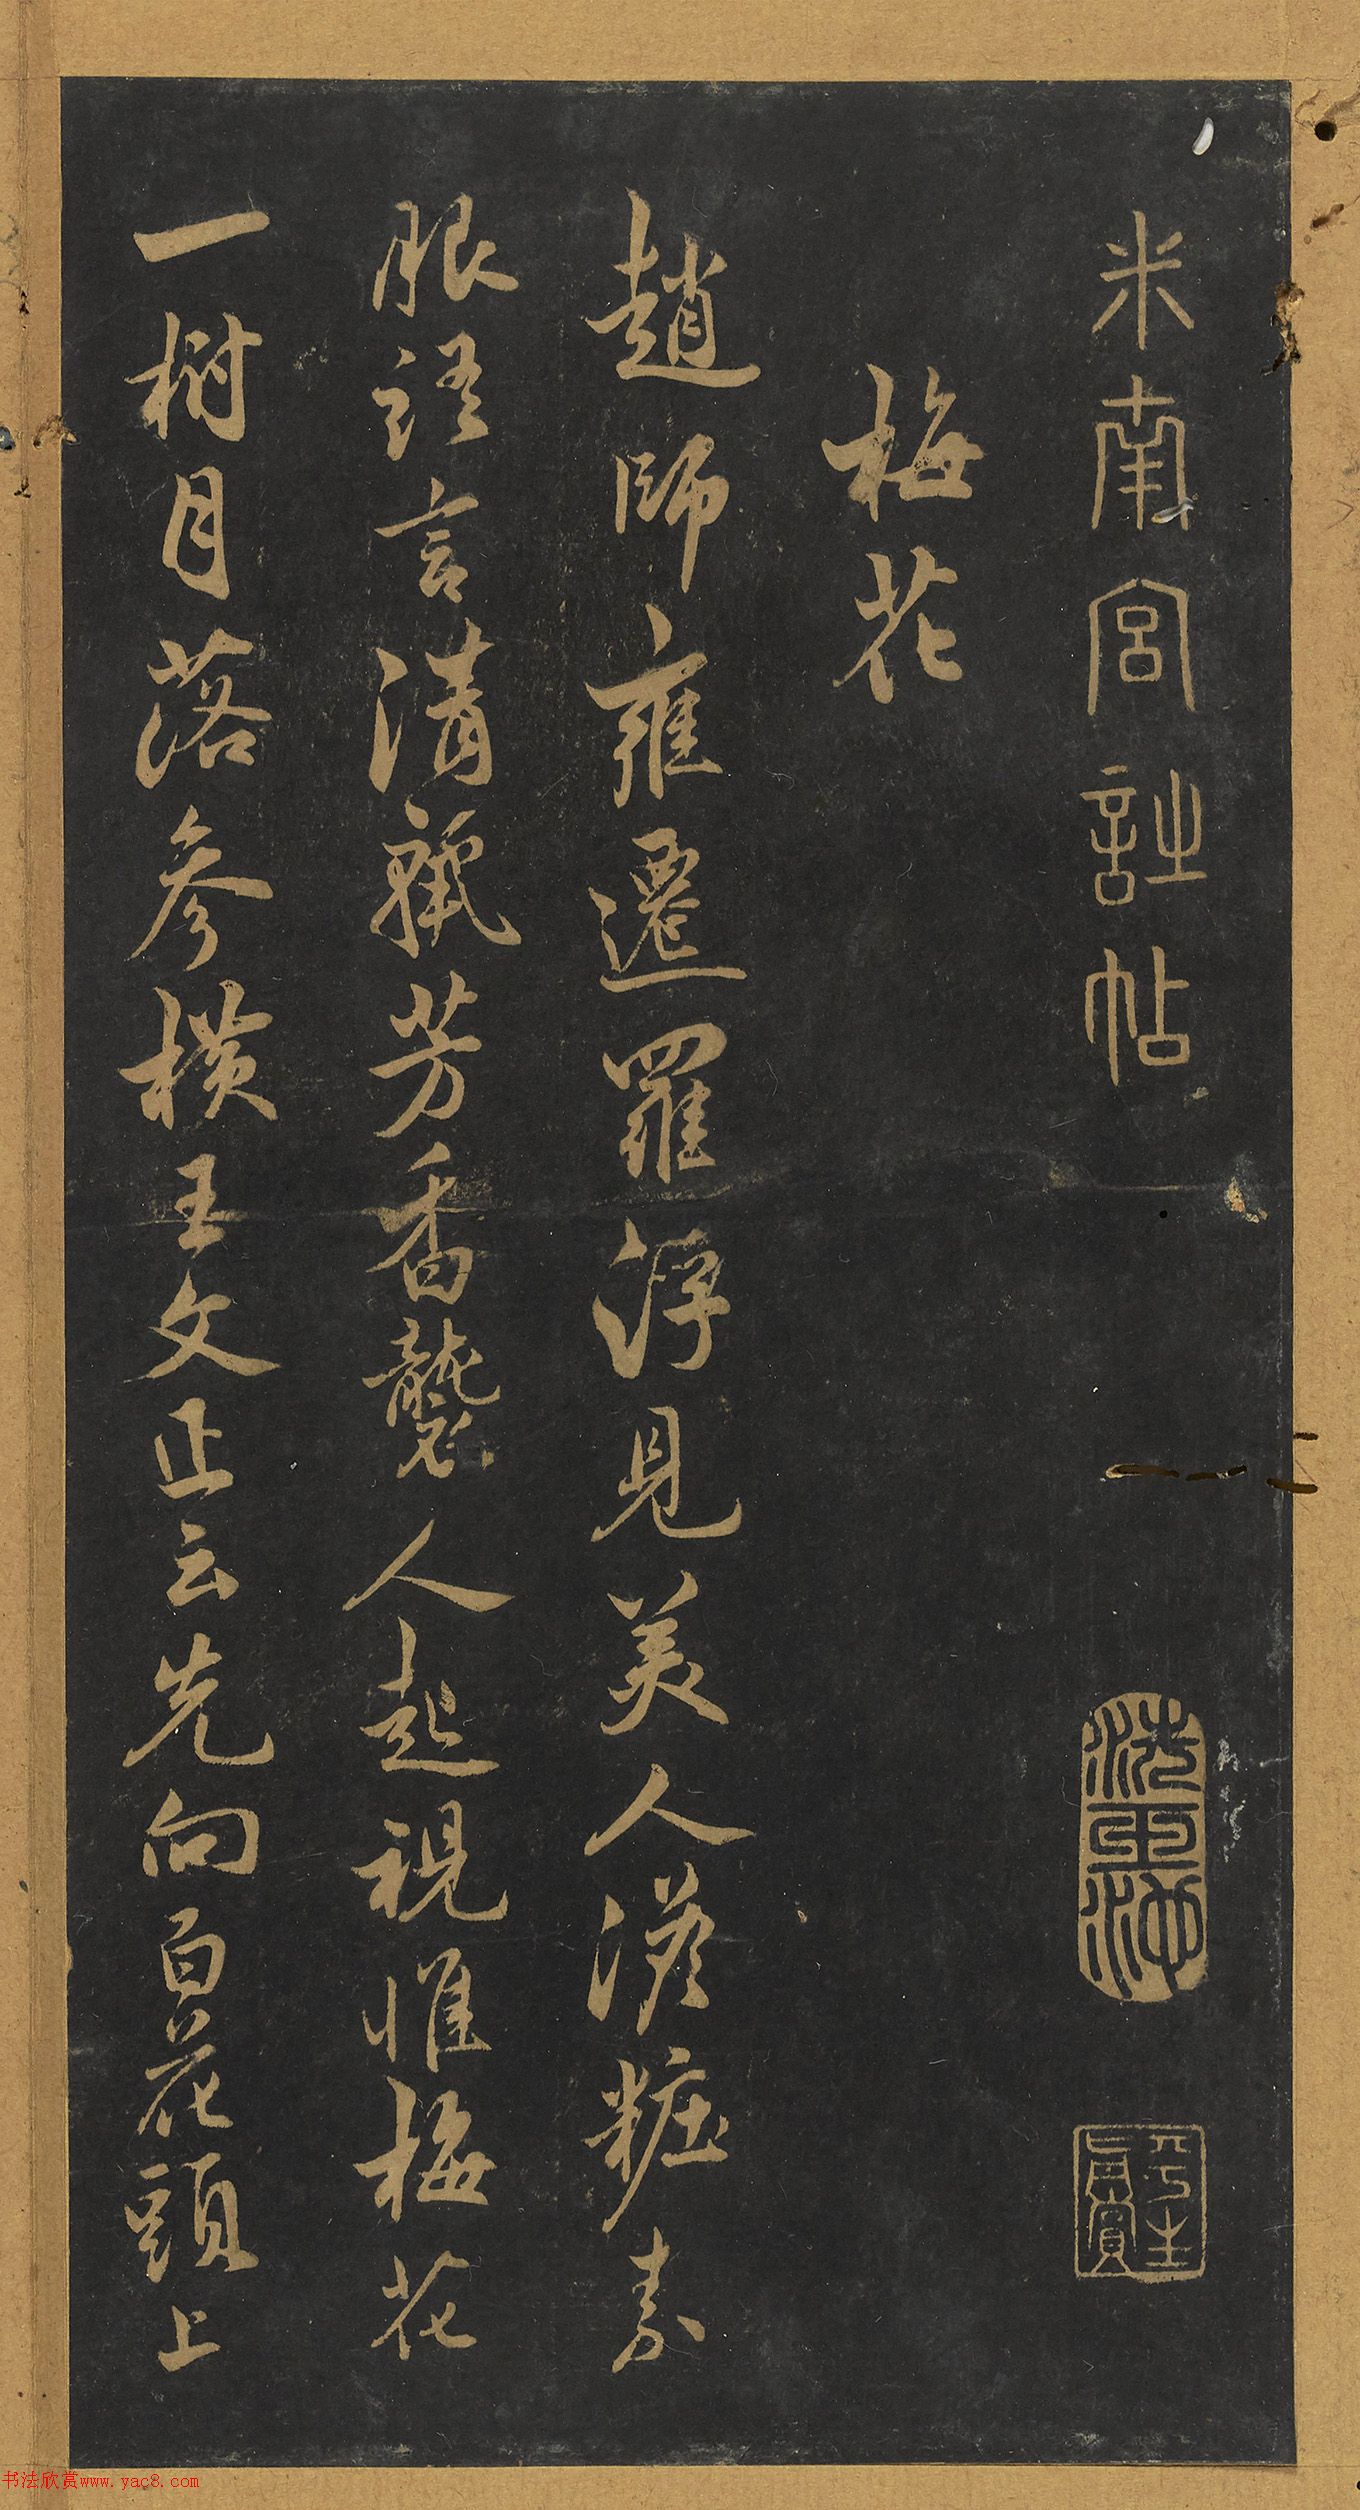 米南宮註帖
梅花
趙師雍遷羅浮見美人淡粧素
服語言清麗芳香襲人起視惟梅花
一樹月落參橫王文正云先向百花頭上
洗玉池
平生真賞
书法欣赏www.yac8.com